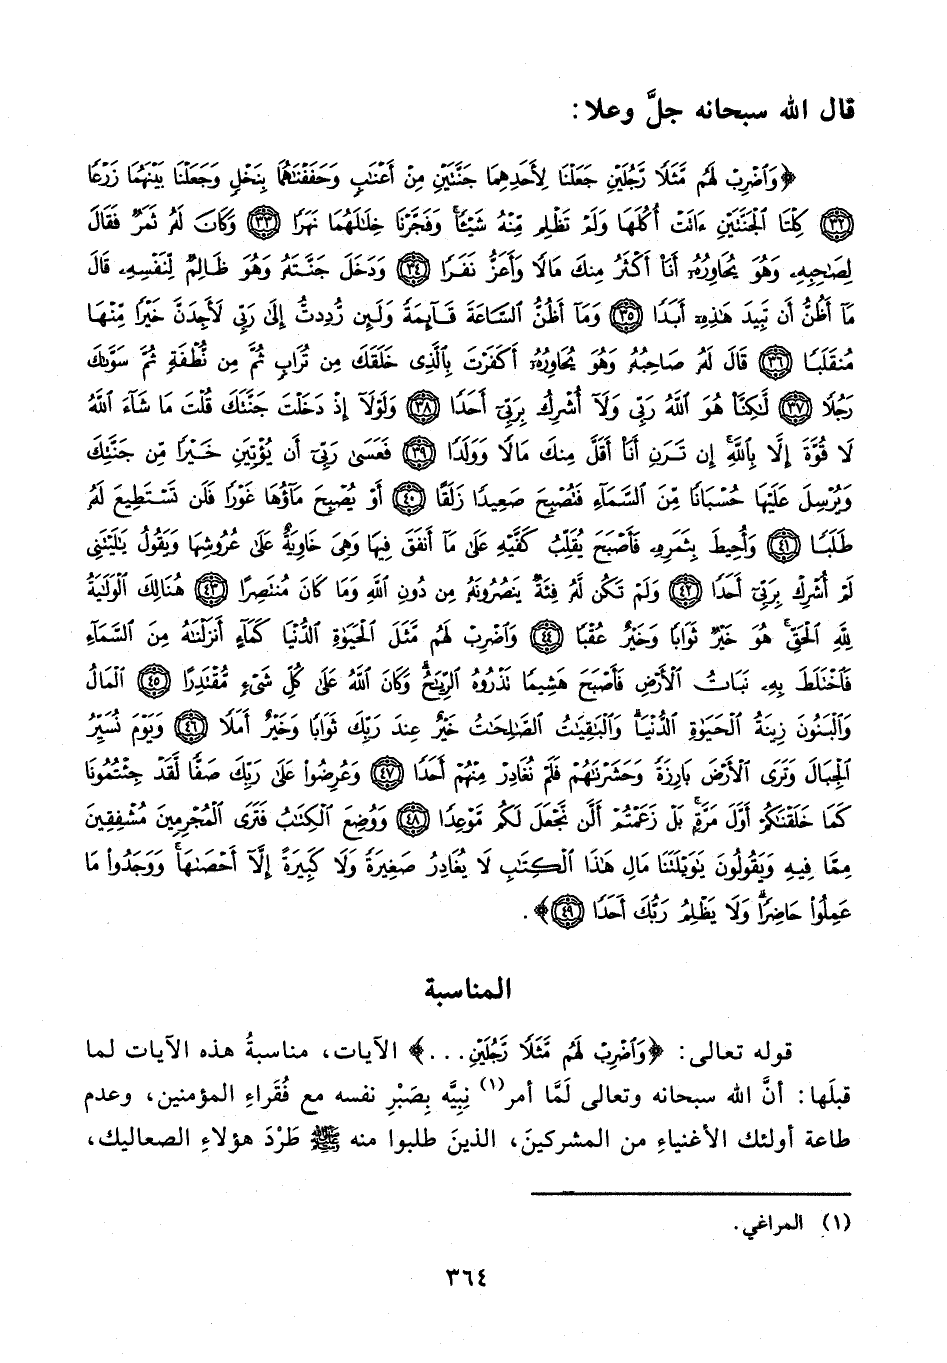 قال الله سبحانه جلَّ وعلا:
﴿وَٱضْرِبْ لَهُم مَّثَلًا رَّجُلَيْنِ جَعَلْنَا لِأَحَدِهِمَا جَنَّتَيْنِ مِنْ أَعْنَٰبٍ وَحَفَفْنَٰهُمَا بِنَخْلٍ وَجَعَلْنَا بَيْنَهُمَا زَرْعًا
﴿٣٢﴾ كِلْتَا ٱلْجَنَّتَيْنِ ءَاتَتْ أُكُلَهَا وَلَمْ تَظْلِم مِّنْهُ شَيْـًٔا ۚ وَفَجَّرْنَا خِلَٰلَهُمَا نَهَرًا ﴿٣٣﴾ وَكَانَ لَهُۥ ثَمَرٌ فَقَالَ
لِصَٰحِبِهِۦ وَهُوَ يُحَاوِرُهُۥٓ أَنَا۠ أَكْثَرُ مِنكَ مَالًا وَأَعَزُّ نَفَرًا ﴿٣٤﴾ وَدَخَلَ جَنَّتَهُۥ وَهُوَ ظَالِمٌ لِّنَفْسِهِۦ قَالَ
مَآ أَظُنُّ أَن تَبِيدَ هَٰذِهِۦٓ أَبَدًا ﴿٣٥﴾ وَمَآ أَظُنُّ ٱلسَّاعَةَ قَآئِمَةً وَلَئِن رُّدِدتُّ إِلَىٰ رَبِّى لَأَجِدَنَّ خَيْرًا مِّنْهَا
مُنقَلَبًا ﴿٣٦﴾ قَالَ لَهُۥ صَاحِبُهُۥ وَهُوَ يُحَاوِرُهُۥٓ أَكَفَرْتَ بِٱلَّذِى خَلَقَكَ مِن تُرَابٍ ثُمَّ مِن نُّطْفَةٍ ثُمَّ سَوَّىٰكَ
رَجُلًا ﴿٣٧﴾ لَّٰكِنَّا۠ هُوَ ٱللَّهُ رَبِّى وَلَآ أُشْرِكُ بِرَبِّىٓ أَحَدًا ﴿٣٨﴾ وَلَوْلَآ إِذْ دَخَلْتَ جَنَّتَكَ قُلْتَ مَا شَآءَ ٱللَّهُ
لَا قُوَّةَ إِلَّا بِٱللَّهِ ۚ إِن تَرَنِ أَنَا۠ أَقَلَّ مِنكَ مَالًا وَوَلَدًا ﴿٣٩﴾ فَعَسَىٰ رَبِّىٓ أَن يُؤْتِيَنِ خَيْرًا مِّن جَنَّتِكَ
وَيُرْسِلَ عَلَيْهَا حُسْبَانًا مِّنَ ٱلسَّمَآءِ فَتُصْبِحَ صَعِيدًا زَلَقًا ﴿٤٠﴾ أَوْ يُصْبِحَ مَآؤُهَا غَوْرًا فَلَن تَسْتَطِيعَ لَهُۥ
طَلَبًا ﴿٤١﴾ وَأُحِيطَ بِثَمَرِهِۦ فَأَصْبَحَ يُقَلِّبُ كَفَّيْهِ عَلَىٰ مَآ أَنفَقَ فِيهَا وَهِىَ خَاوِيَةٌ عَلَىٰ عُرُوشِهَا وَيَقُولُ يَٰلَيْتَنِى
لَمْ أُشْرِكْ بِرَبِّىٓ أَحَدًا ﴿٤٢﴾ وَلَمْ تَكُن لَّهُۥ فِئَةٌ يَنصُرُونَهُۥ مِن دُونِ ٱللَّهِ وَمَا كَانَ مُنتَصِرًا ﴿٤٣﴾ هُنَالِكَ ٱلْوَلَٰيَةُ
لِلَّهِ ٱلْحَقِّ ۚ هُوَ خَيْرٌ ثَوَابًا وَخَيْرٌ عُقْبًا ﴿٤٤﴾ وَٱضْرِبْ لَهُم مَّثَلَ ٱلْحَيَوٰةِ ٱلدُّنْيَا كَمَآءٍ أَنزَلْنَٰهُ مِنَ ٱلسَّمَآءِ
فَٱخْتَلَطَ بِهِۦ نَبَاتُ ٱلْأَرْضِ فَأَصْبَحَ هَشِيمًا تَذْرُوهُ ٱلرِّيَٰحُ ۗ وَكَانَ ٱللَّهُ عَلَىٰ كُلِّ شَىْءٍ مُّقْتَدِرًا ﴿٤٥﴾ ٱلْمَالُ
وَٱلْبَنُونَ زِينَةُ ٱلْحَيَوٰةِ ٱلدُّنْيَا ۖ وَٱلْبَٰقِيَٰتُ ٱلصَّٰلِحَٰتُ خَيْرٌ عِندَ رَبِّكَ ثَوَابًا وَخَيْرٌ أَمَلًا ﴿٤٦﴾ وَيَوْمَ نُسَيِّرُ
ٱلْجِبَالَ وَتَرَى ٱلْأَرْضَ بَارِزَةً وَحَشَرْنَٰهُمْ فَلَمْ نُغَادِرْ مِنْهُمْ أَحَدًا ﴿٤٧﴾ وَعُرِضُوا۟ عَلَىٰ رَبِّكَ صَفًّا لَّقَدْ جِئْتُمُونَا
كَمَا خَلَقْنَٰكُمْ أَوَّلَ مَرَّةٍۭ ۚ بَلْ زَعَمْتُمْ أَلَّن نَّجْعَلَ لَكُم مَّوْعِدًا ﴿٤٨﴾ وَوُضِعَ ٱلْكِتَٰبُ فَتَرَى ٱلْمُجْرِمِينَ مُشْفِقِينَ
مِمَّا فِيهِ وَيَقُولُونَ يَٰوَيْلَتَنَا مَالِ هَٰذَا ٱلْكِتَٰبِ لَا يُغَادِرُ صَغِيرَةً وَلَا كَبِيرَةً إِلَّآ أَحْصَىٰهَا ۚ وَوَجَدُوا۟ مَا
عَمِلُوا۟ حَاضِرًا ۗ وَلَا يَظْلِمُ رَبُّكَ أَحَدًا ﴿٤٩﴾﴾.
المناسبة
قوله تعالى: ﴿وَٱضْرِبْ لَهُم مَّثَلًا رَّجُلَيْنِ...﴾ الآيات، مناسبةُ هذه الآيات لما
قبلَها: أنَّ الله سبحانه وتعالى لَمَّا أمر(١) نبِيَّه بِصَبْرِ نفسه مع فُقَراءِ المؤمنين، وعدم
طاعة أولئك الأغنياءِ من المشركينَ، الذينَ طلبوا منه ﷺ طَرْدَ هؤلاءِ الصعاليك،
(١) المراغي.
٣٦٤